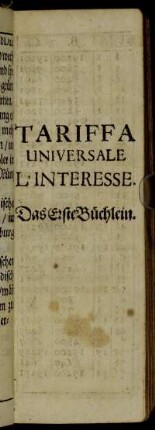 TARIFFA
UNIVERSALE
L'INTERESSE.
Das Erste Büchlein.